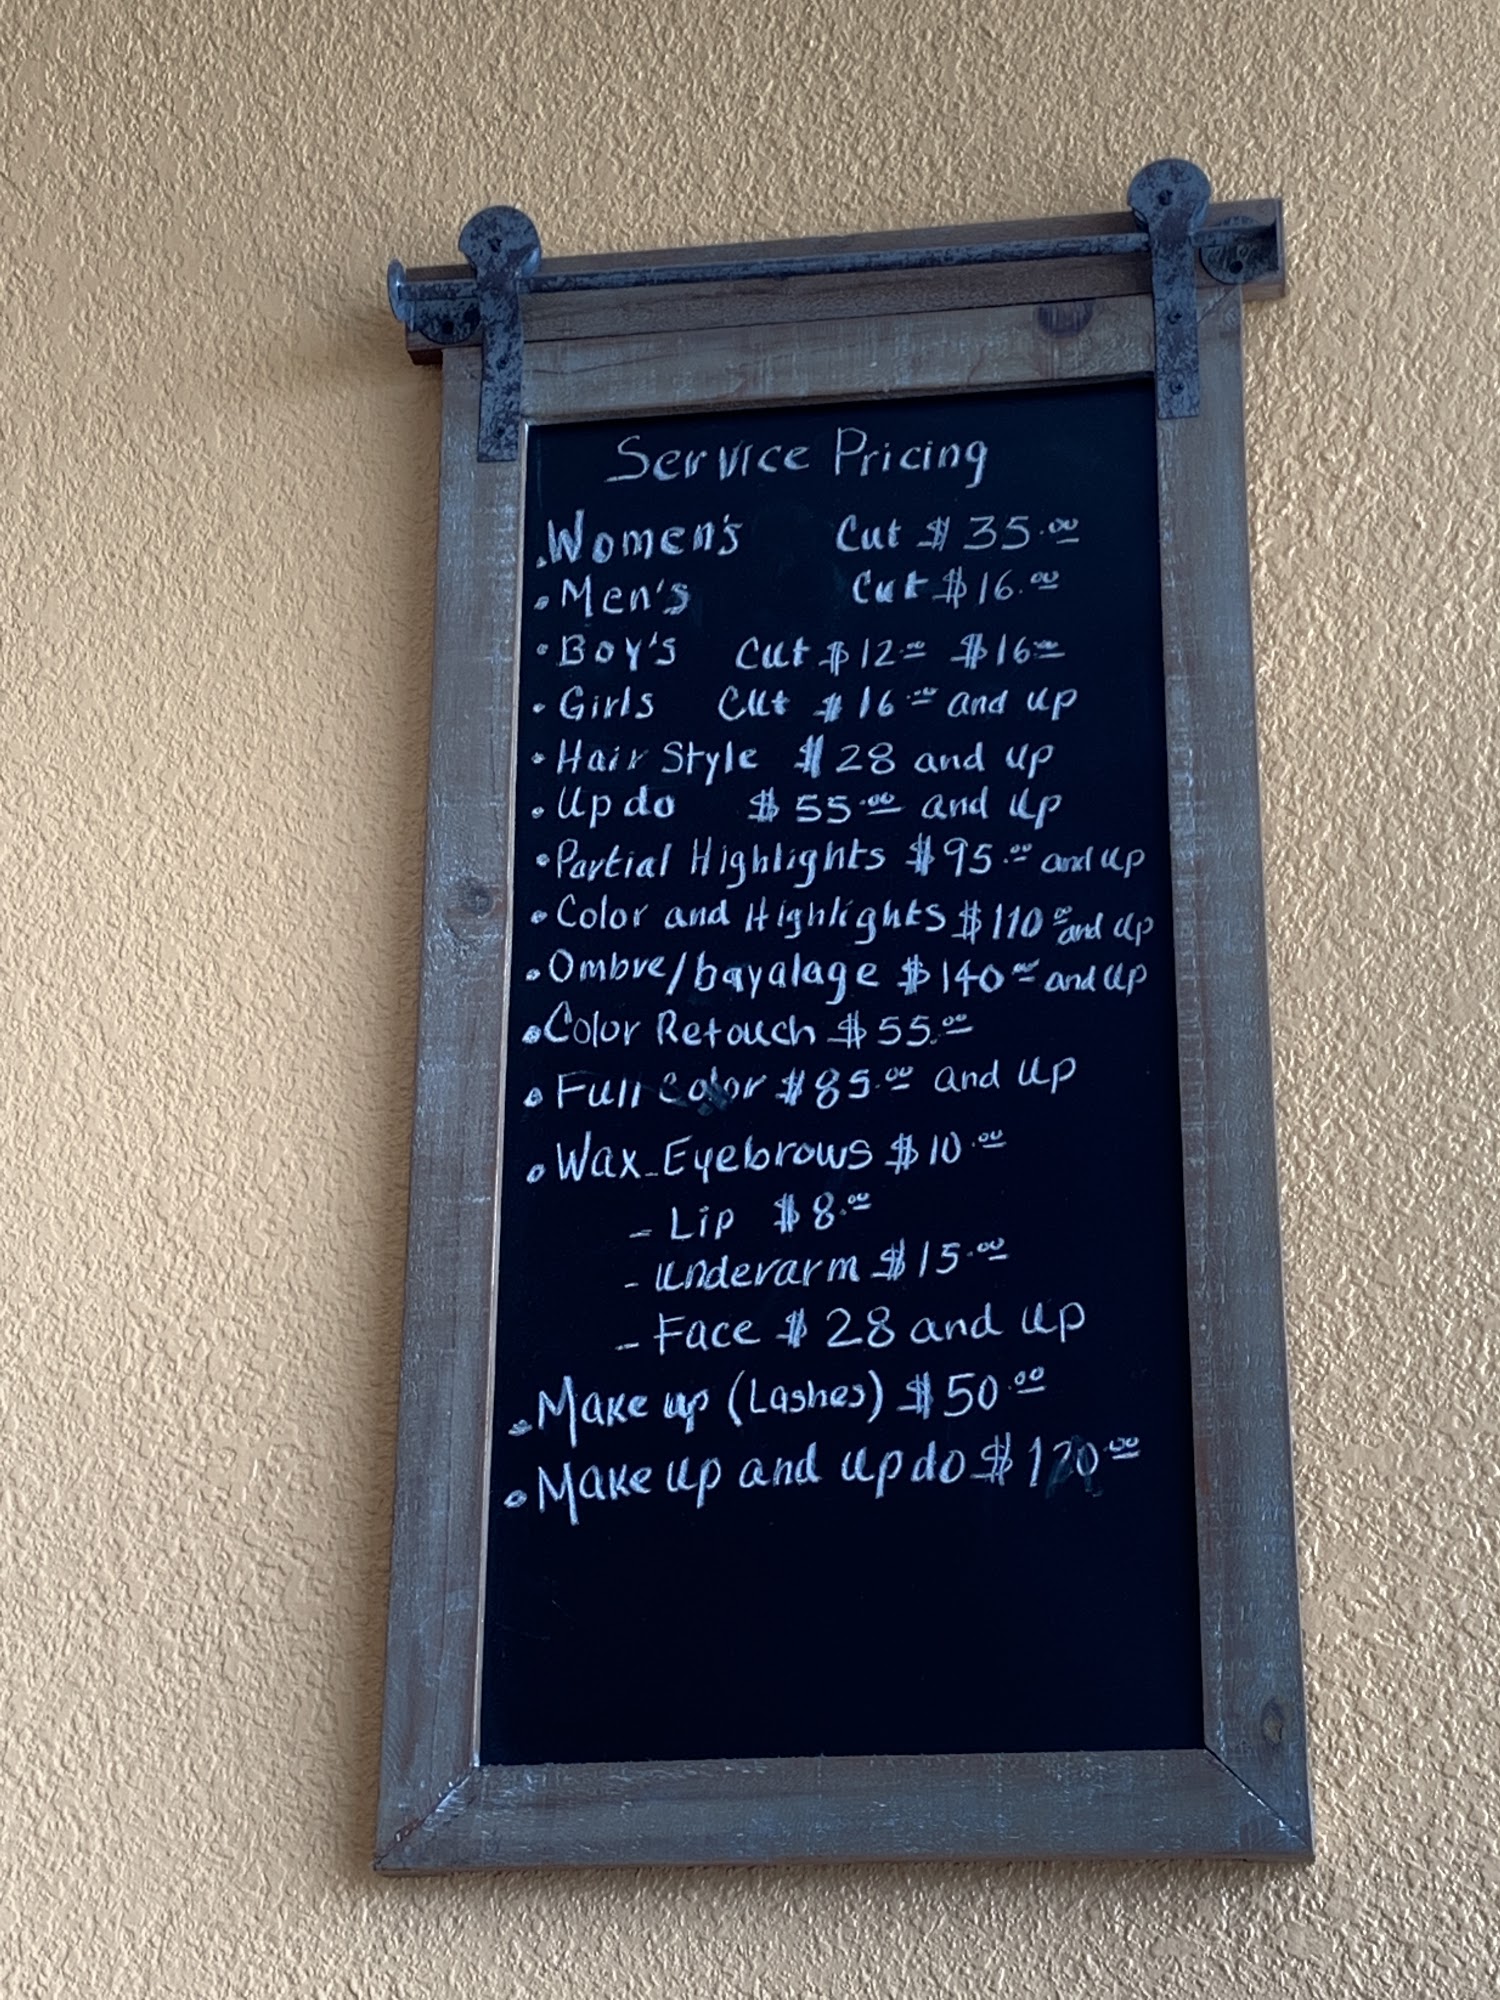 Service Pricing
• Women's Cut $35.00
• Men's Cut $16.00
• Boy's Cut $12.00 $16.00
• Girls Cut $16.00 and up
• Hair Style $28 and up
• Up do $55.00 and up
• Partial Highlights $95.00 and up
• Color and Highlights $110.00 and up
• Ombre/bayalage $140.00 and up
• Color Retouch $55.00
• Full Color $85.00 and up
• Wax - Eyebrows $10.00
- Lip $8.00
- Underarm $15.00
- Face $28 and up
• Make up (Lashes) $50.00
• Make up and up do $120.00